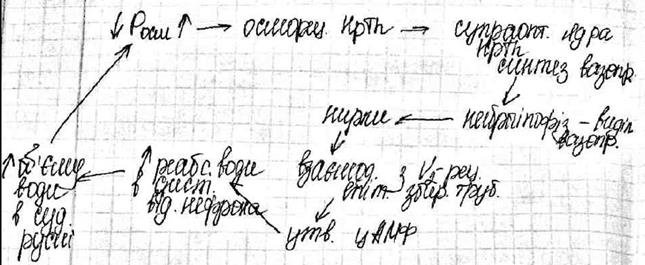 ↓ Росм ↑ → осморец. нртп → супраопт. ядра
нртп
синтез вазопр.
нирки ← нейрогіпофіз – виділ
вазопр.
↑ об'єму
води
в суд.
руслі
↑ реабс. води
в дист.
від. нефрона
взаємод. з V₂-рец.
епіт. збір. труб.
утв. цАМФ